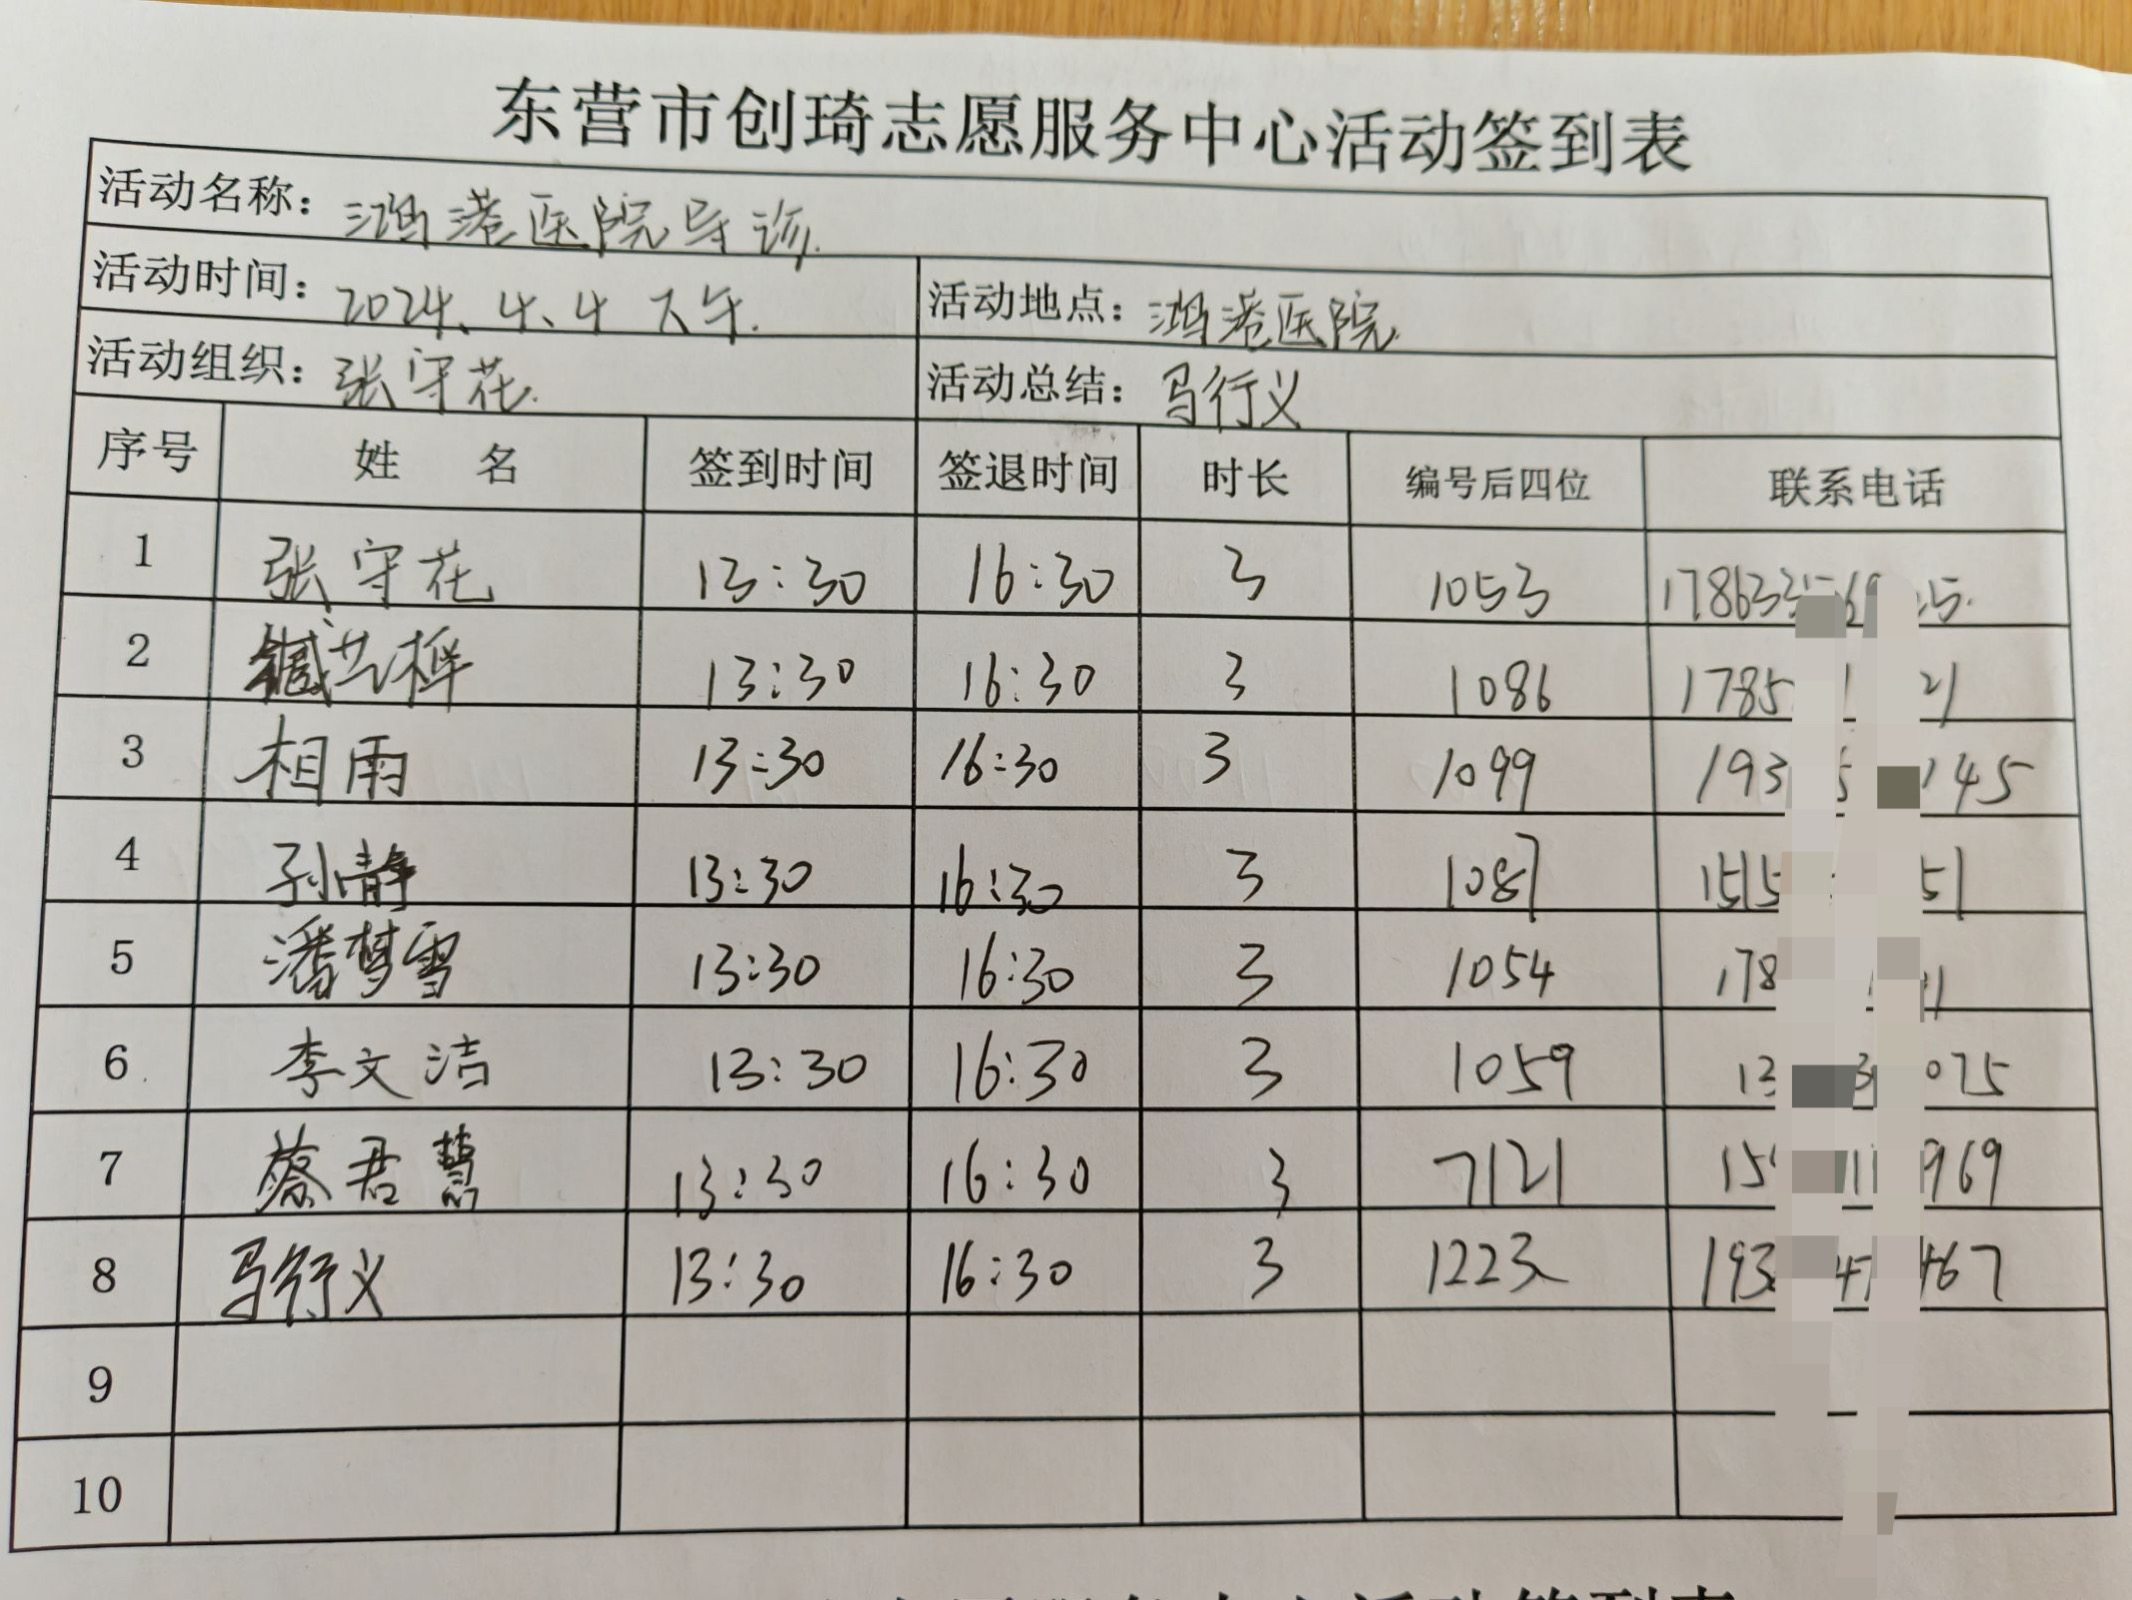 东营市创琦志愿服务中心活动签到表
活动名称：鸿港医院导诊.
活动时间：2024.4.4 下午. 活动地点：鸿港医院.
活动组织：张守花. 活动总结：马行义
序号 姓 名 签到时间 签退时间 时长 编号后四位 联系电话
1 张守花 13:30 16:30 3 1053
2 13:30 16:30 3 1086 1785 21
3 相雨 13:30 16:30 3 1099 193 145
4 孙静 13:30 16:30 3 1087 1515 51
5 潘梦雪 13:30 16:30 3 1054 178
6 李文洁 13:30 16:30 3 1059 13 075
7 蔡君慧 13:30 16:30 3 7121 15 969
8 马行义 13:30 16:30 3 1223 193 467
9
10